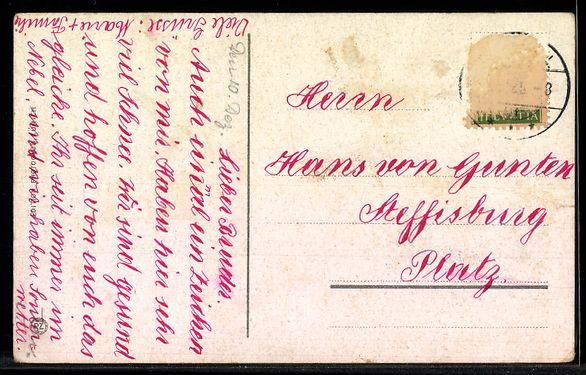 Den 10. Dez.
Lieber Bruder.
Auch einál ein Zeichen
von mir. Haben hier sehr
viel Schnee. Wir sind gesund
und hoffen von euch das
gleiche. Ihr seit immer im
Nebel, und wir haben Sonnen-
wetter.
Viele Grüsse: Marie + Familie
Herrn
Hans von Gunten
Steffisburg
Platz.
HELVETIA